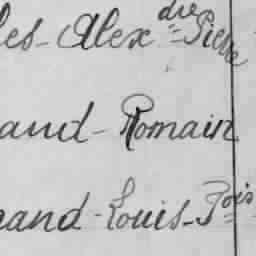 les-Alex dre Pierre
and-Romain
and-Louis-Fois